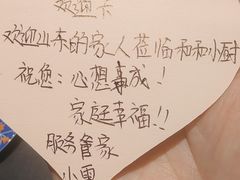 欢迎卡
欢迎北京的家人莅临和和小厨
祝您：心想事成！
家庭幸福！！
服务管家
小雪